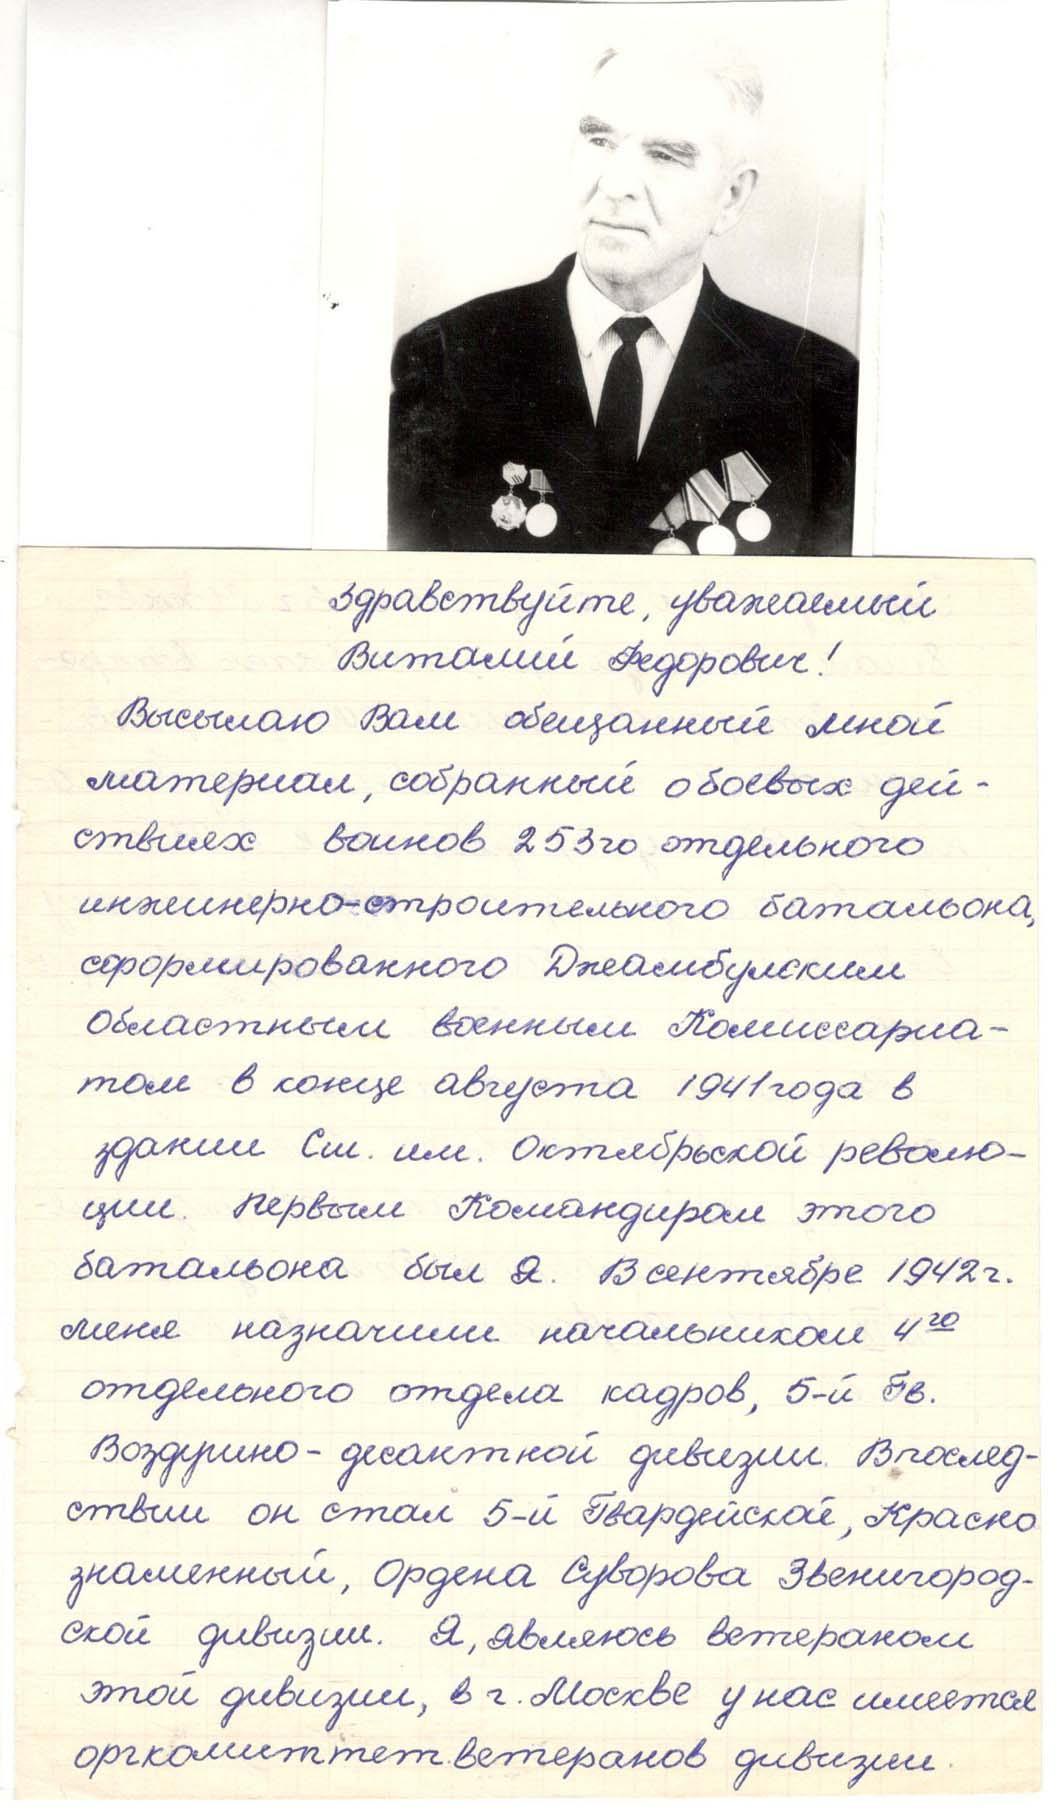 Здравствуйте, уважаемый
Виталий Федорович!
Высылаю Вам обещанный мной
материал, собранный о боевых дей-
ствиях воинов 253го отдельного
инженерно-строительного батальона,
сформированного Джамбулским
Областным военным Комиссариа-
том в конце августа 1941 года в
здании Сш. им. Октябрьской револю-
ции. Первым Командиром этого
батальона был Я. В сентябре 1942 г.
меня назначили начальником 4го
отдельного отдела кадров, 5-й Гв.
Воздушно-десантной дивизии. Впослед-
ствии он стал 5-й Гвардейской, Красно
знаменный, Ордена Суворова Звенигород-
ской дивизии. Я, являюсь ветераном
этой дивизии, в г. Москве у нас имеется
оргкомиттет ветеранов дивизии.